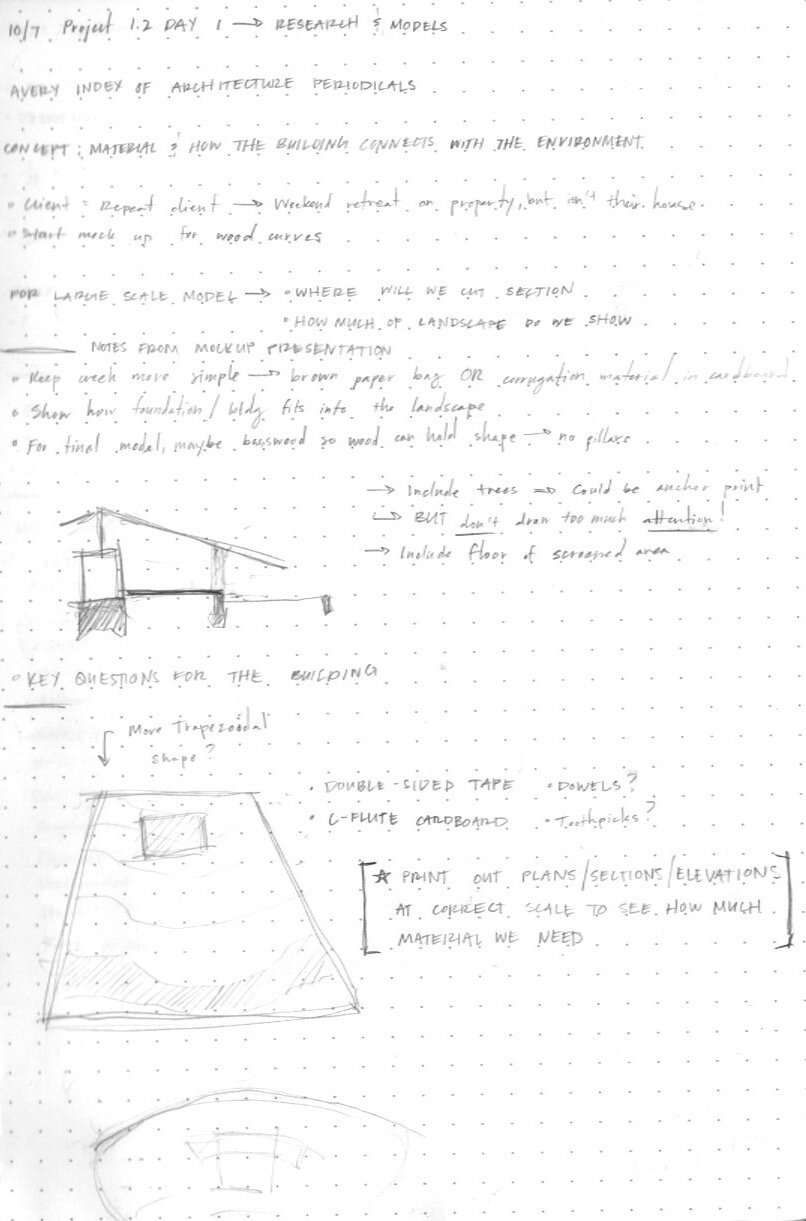 10/7 Project 1.2 DAY 1 → RESEARCH & MODELS
AVERY INDEX OF ARCHITECTURE PERIODICALS
CONCEPT: MATERIAL & HOW THE BUILDING CONNECTS WITH THE ENVIRONMENT.
• Client = Repeat client → Weekend retreat on property, but isn't their house.
• Start mock up for wood curves
FOR LARGE SCALE MODEL → • WHERE WILL WE CUT SECTION
• HOW MUCH OF LANDSCAPE DO WE SHOW
NOTES FROM MOCKUP PRESENTATION
• Keep creek more simple → brown paper bag OR corrugation material in cardboard
• Show how foundation / bldg fits into the landscape
• For final model, maybe basswood so wood can hold shape → no pillars
→ Include trees → Could be anchor point
↳ BUT don't draw too much attention!
→ Include floor of screened area
• KEY QUESTIONS FOR THE BUILDING
More Trapezoidal
shape?
• DOUBLE-SIDED TAPE • DOWELS?
• C-FLUTE CARDBOARD • Toothpicks?
[★ PRINT OUT PLANS/SECTIONS/ELEVATIONS
AT CORRECT SCALE TO SEE HOW MUCH
MATERIAL WE NEED]